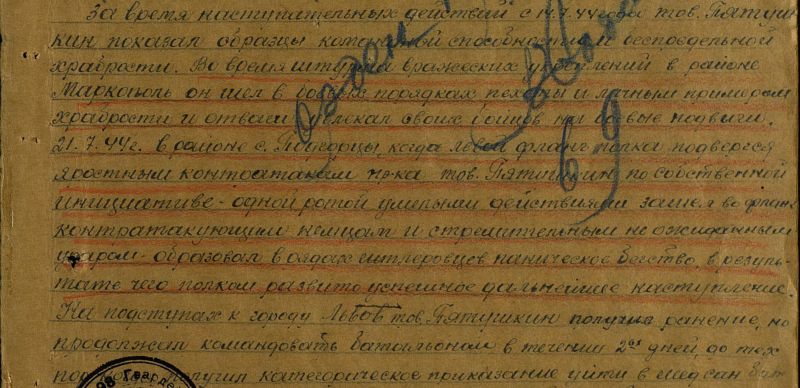 За время наступательных действий с 14.7.44 года тов. Пятуш
кин показал образцы командной способности и беспредельной
храбрости. Во время штурма вражеских укреплений в районе
Маркополь он шел в боевых порядках пехоты и личным примером
храбрости и отваги увлекал своих бойцов на боевые подвиги.
21.7.44г. в районе с. Подгорцы, когда левый фланг полка подвергся
яростным контратакам пр-ка тов. Пятушкин по собственной
инициативе - одной ротой умелыми действиями зашел во фланг
контратакующим немцам и стремительным неожиданным
ударом - образовал в рядах гитлеровцев паническое бегство, в резуль-
тате чего полком развито успешное дальнейшее наступление.
На подступах к городу Львов тов. Пятушкин получил ранение, но
продолжал командовать батольоном в течении 2ух дней, до тех
пор получил категорическое приказание уйти в Медсанбат
69
98 Гварде